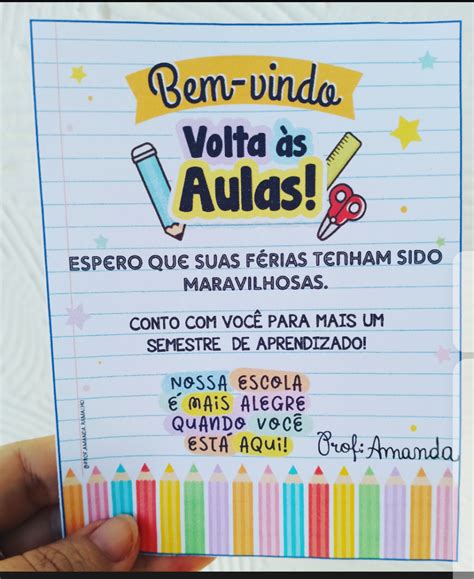 Bem-vindo
Volta às
Aulas!
ESPERO QUE SUAS FÉRIAS TENHAM SIDO
MARAVILHOSAS.
CONTO COM VOCÊ PARA MAIS UM
SEMESTRE DE APRENDIZADO!
NOSSA ESCOLA
É MAIS ALEGRE
QUANDO VOCÊ
ESTÁ AQUI!
Prof: Amanda
@PROF.AMANDA.RAMALHO